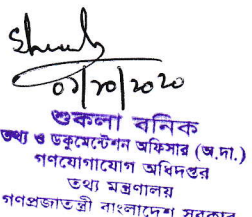 ০১/১০/২০২০
শুকলা বনিক
তথ্য ও ডকুমেন্টেশন অফিসার (অ.দা.)
গণযোগাযোগ অধিদপ্তর
তথ্য মন্ত্রণালয়
গণপ্রজাতন্ত্রী বাংলাদেশ সরকার